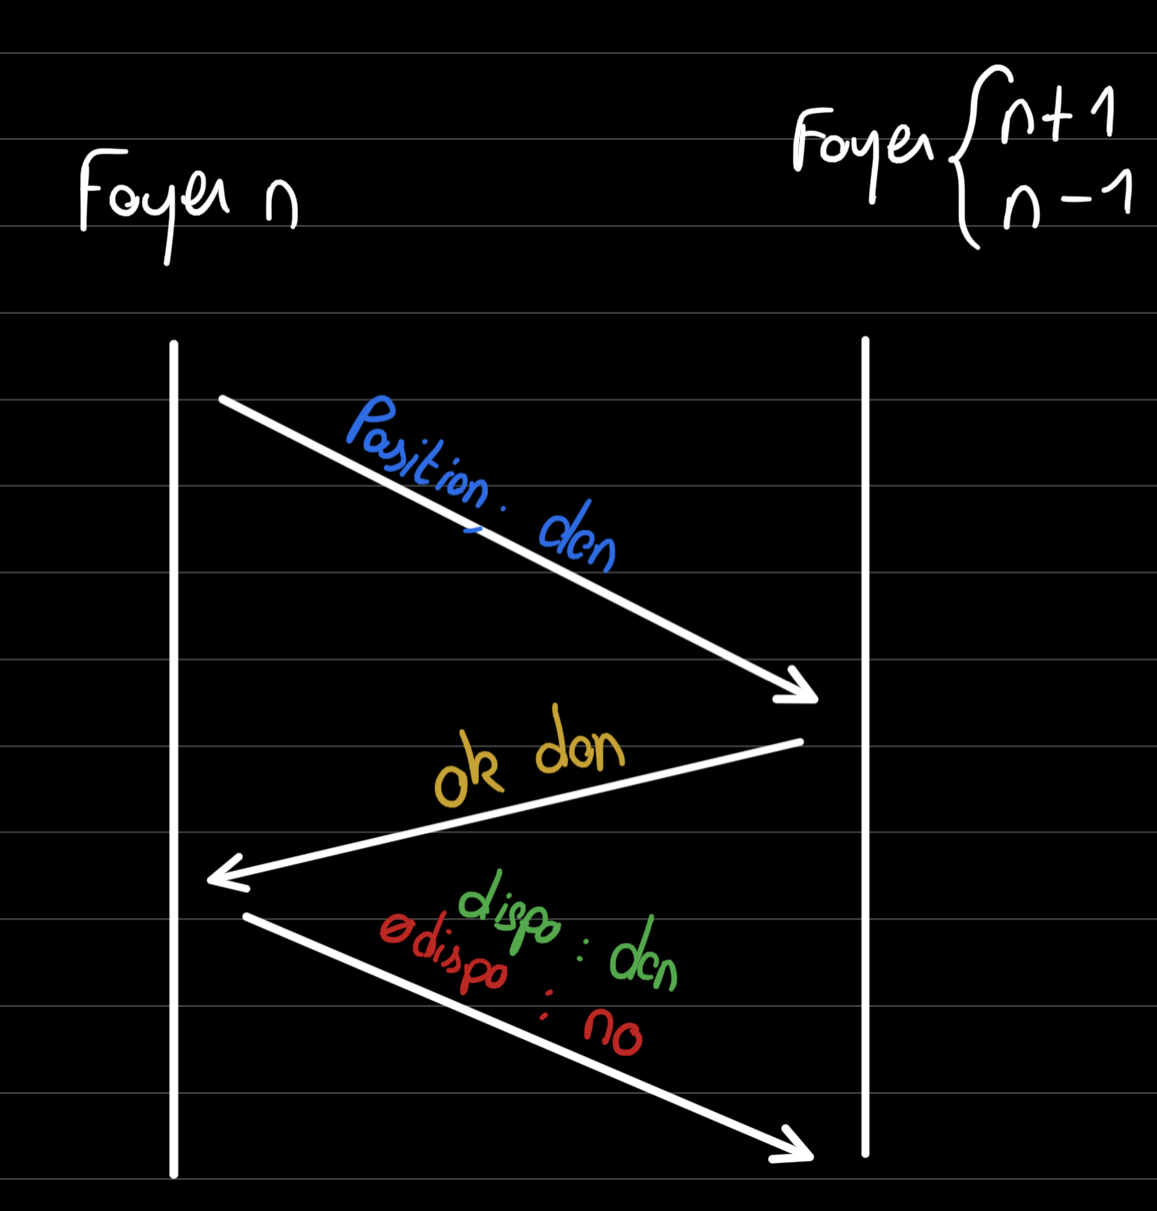 Foyer n
Foyer { n+1
n-1
Position : den
ok den
dispo : den
ødispo : no